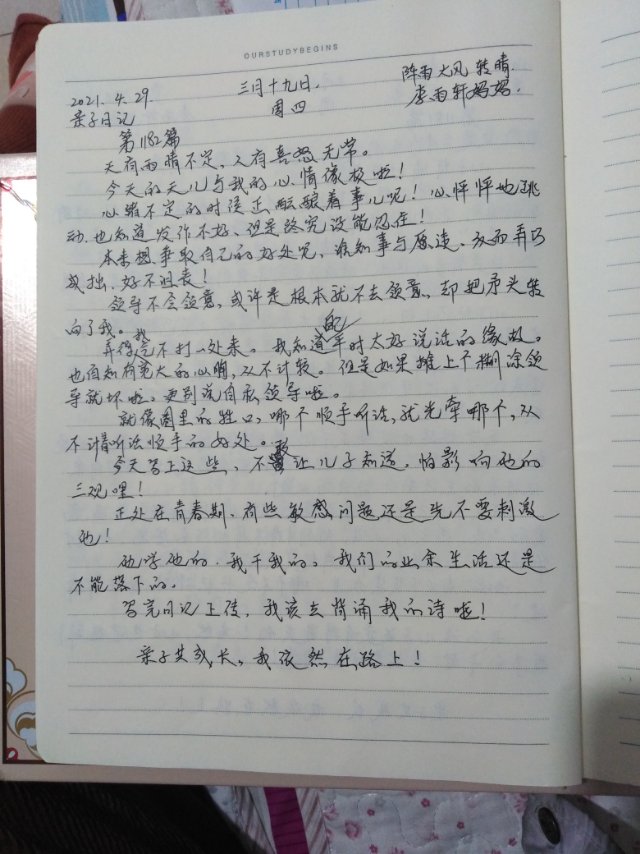 OURSTUDYBEGINS
2021.4.29. 三月十九日. 阵雨大风转晴.
亲子日记 周四 李雨轩妈妈.
第1182篇
天有雨晴不定,人有喜怒无常。
今天的天儿与我的心情像极啦!
心绪不定的时候正酝酿着事儿呢!心怦怦地跳
动.也知道发作不好、但是终究没能忍住!
本来想争取自己的好处呢,谁知事与愿违、反而弄巧
成拙.好不沮丧!
领导不会领意,或许是根本就不去领意、却把矛头转
向了我。
弄得我气不打一处来。我知道平时的太好说话的缘故。
也自知有宽大的心胸,从不计较。但是如果摊上个糊涂领
导就坏啦,更别说自私领导啦。
就像圈里的牲口,哪个顺手听话,就光牵哪个,从
不计着听话顺手的好处。
今天写上这些、不敢让儿子知道,怕影响他的
三观哩!
正处在青春期.有些敏感问题还是先不要刺激
他!
他学他的.我干我的。我们的业余生活还是
不能落下的.
写完日记上传,我该去背诵我的诗啦!
亲子共成长,我依然在路上!